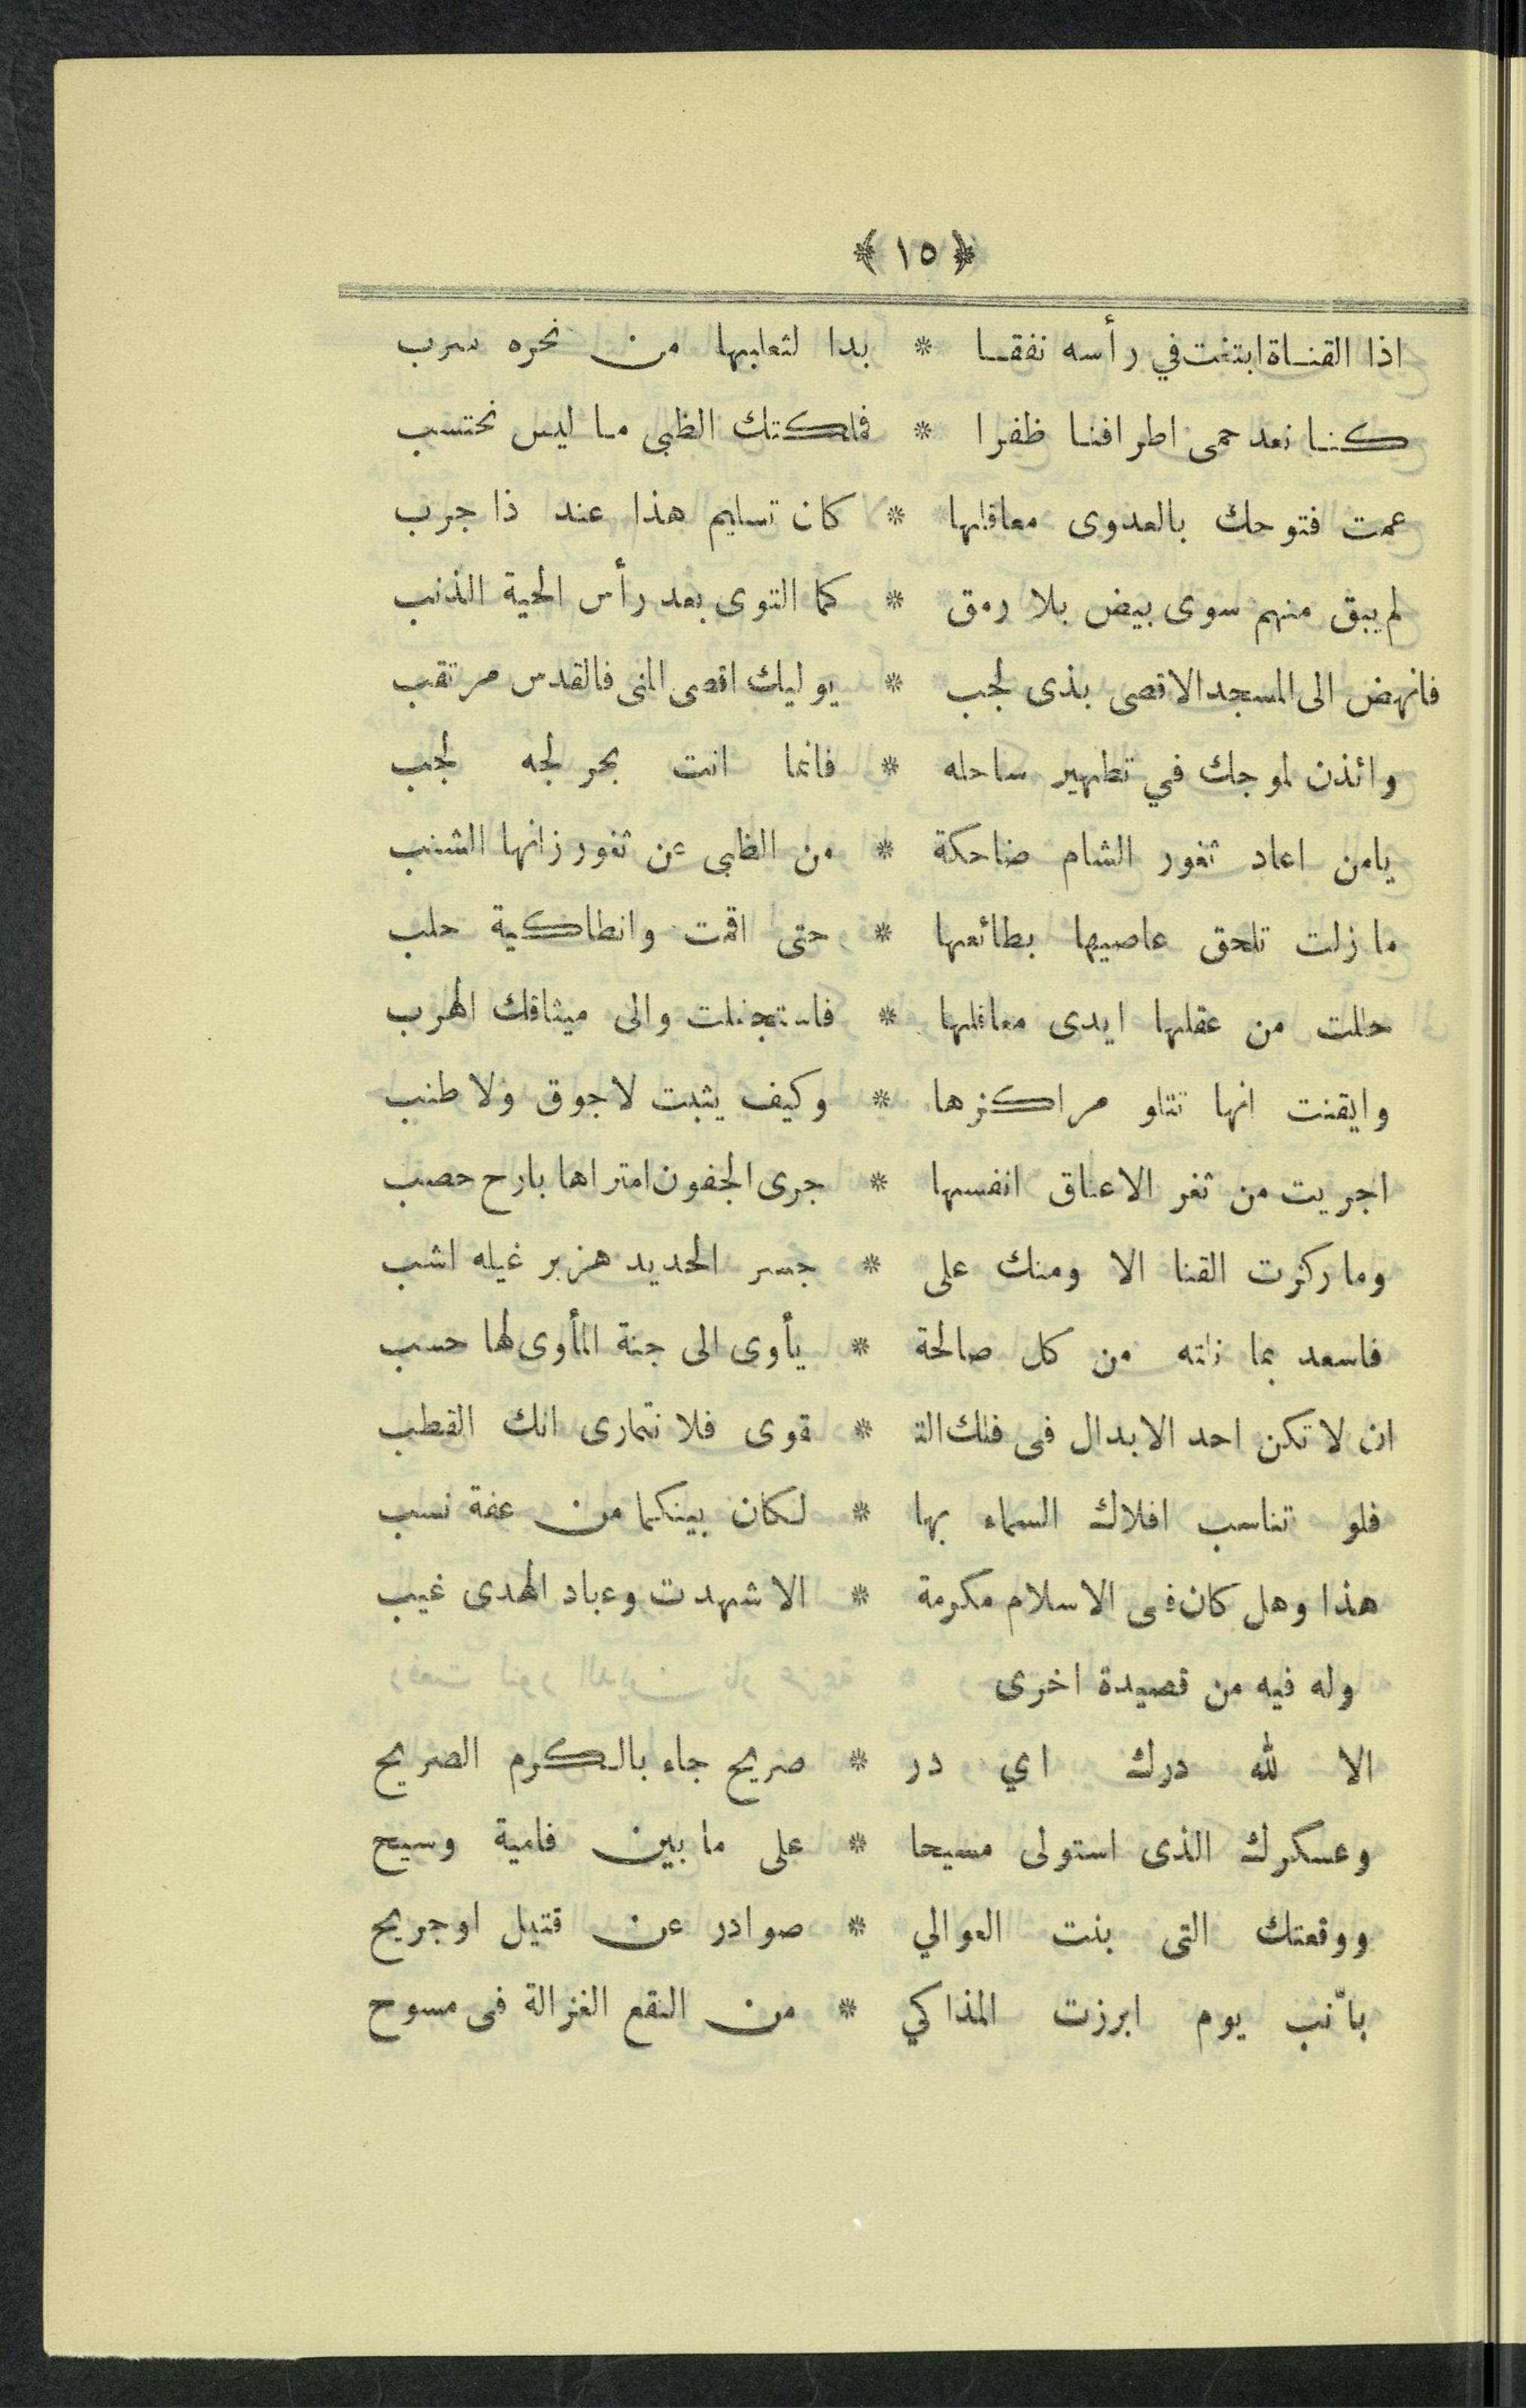 ﴿ ١٥ ﴾
اذا القناة ابتغت في رأسه نفقا * بدا لثعلبها من نحره سرب
كنا نعد حمى اطرافنا ظفرا * فملكتك الظبى ما ليس نحتسب
عمت فتوحك بالعدوى معاقلها * كان تسليم هذا عند ذا جرب
لم يبق منهم سوى بيض بلا رمق * كما التوى بعد رأس الحية الذنب
فانهض الى المسجد الاقصى بذى لجب * يوليك اقصى المنى فالقدس مرتقب
وائذن لموجك في تطهير ساحله * فانما انت بحر لجه لجب
يامن اعاد ثغور الشام ضاحكة * من الظبى عن ثغور زانها الشنب
ما زلت تلحق عاصيها بطائعها * حتى اقمت وانطاكية حلب
حللت من عقلها ايدى معاقلها * فاستجفلت والى ميثاقك الهرب
وايقنت انها تتلو مراكزها * وكيف يثبت لاجوق ولا طنب
اجريت من ثغر الاعناق انفسها * جرى الجفون امتراها بارح حصب
وما ركزت القنا الا ومنك على * جسر الحديد هزبر غيله اشب
فاسعد بما نلته من كل صالحة * يأوى الى جنة المأوى لها حسب
ان لا تكن احد الابدال فى فلك الت * قوى فلا نتمارى انك القطب
فلو تناسب افلاك السماء بها * لكان بينكما من عفة نسب
هذا وهل كان فى الاسلام مكرمة * الا شهدت وعباد الهدى غيب
وله فيه من قصيدة اخرى
الا لله درك اي در * صريح جاء بالكرم الصريح
وعسكرك الذى استولى مسيحا * على ما بين فامية وسيح
ووقعتك التى بنت العوالي * صوادر عن قتيل او جريح
بأنب يوم ابرزت المذاكي * من النقع الغزالة فى مسوح